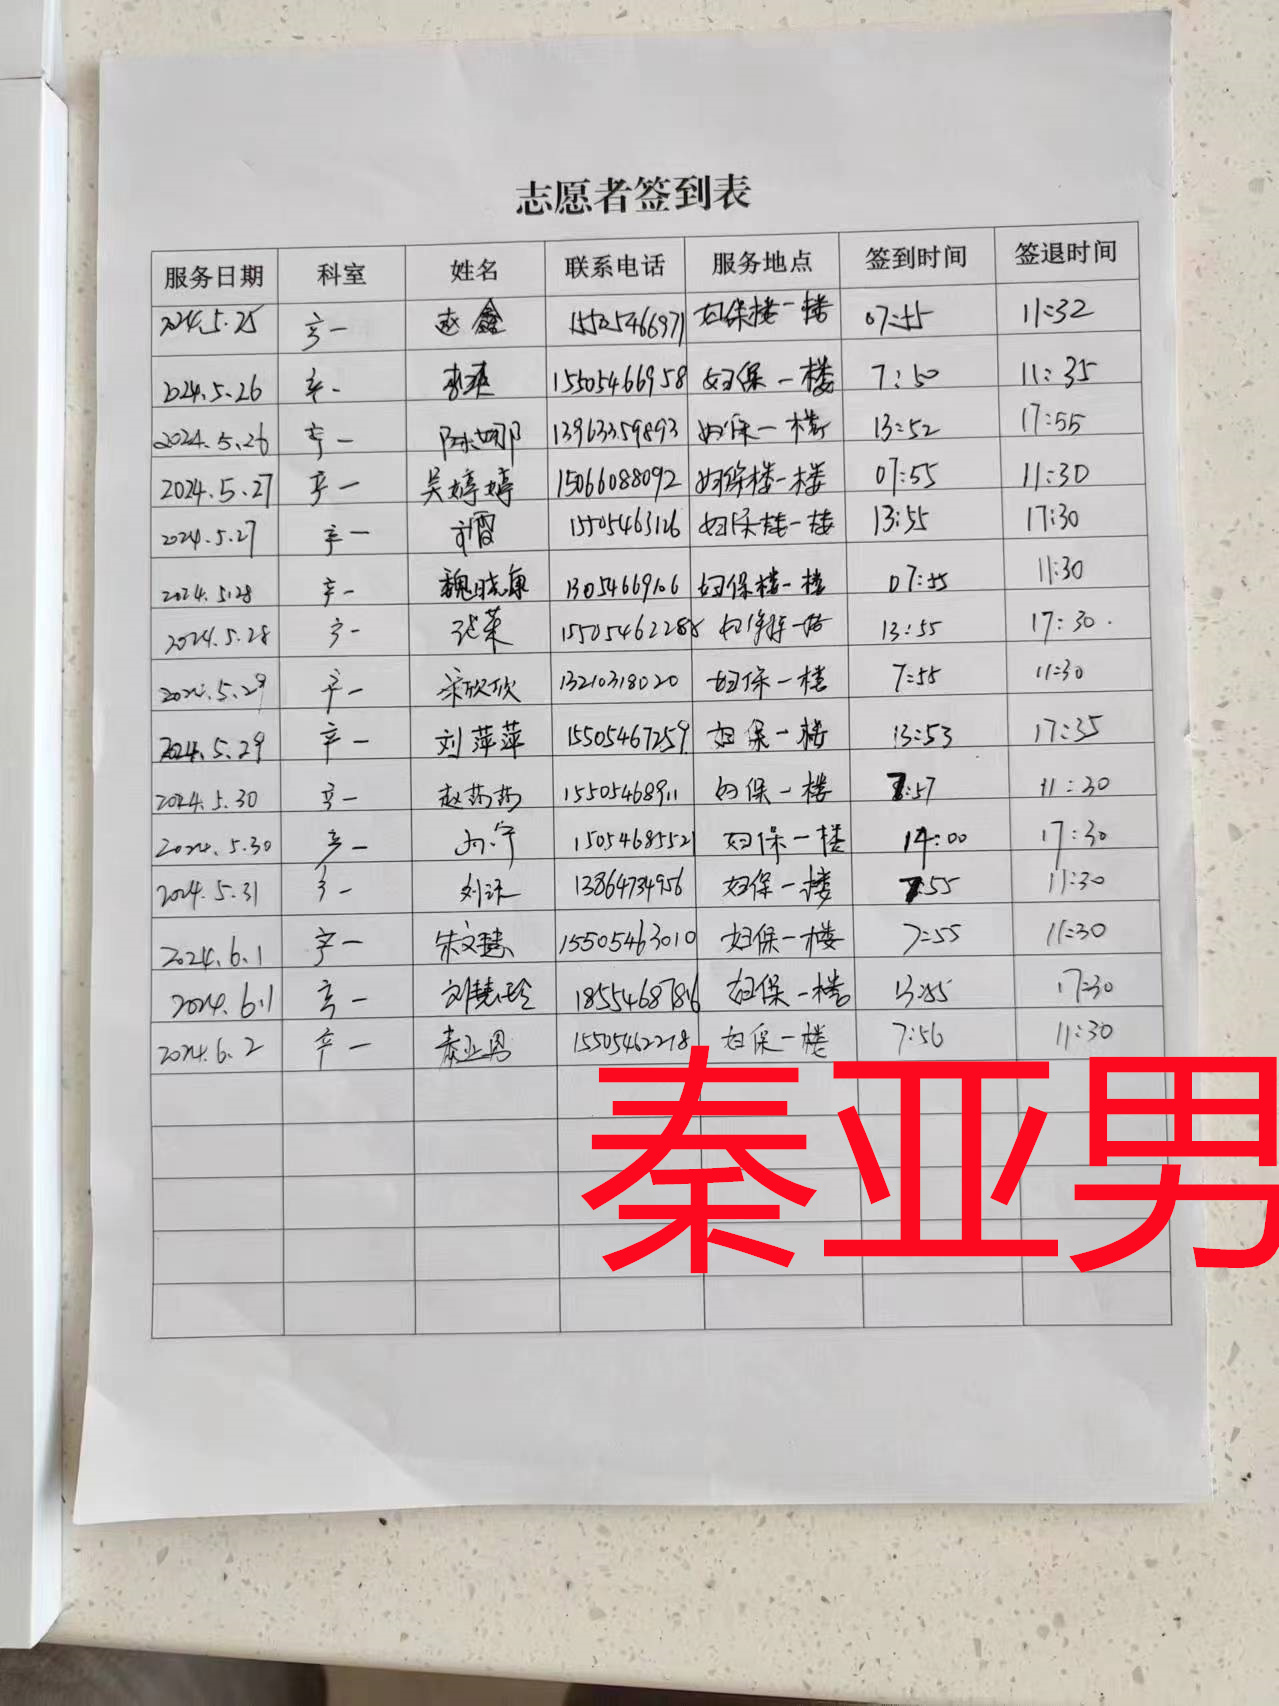 志愿者签到表
服务日期 科室 姓名 联系电话 服务地点 签到时间 签退时间
2024.5.25 一 赵鑫 15505466971 妇保楼一楼 07:55 11:32
2024.5.26 一 15505466958 妇保一楼 7:50 11:35
2024.5.26 一 陈娜 13963359893 妇保一楼 13:52 17:55
2024.5.27 一 吴婷婷 15066088092 妇保楼一楼 07:55 11:30
2024.5.27 一 15505463126 妇保楼一楼 13:55 17:30
2024.5.28 一 魏晓康 13054669106 妇保楼一楼 07:55 11:30
2024.5.28 一 张荣 妇保一楼 13:55 17:30.
2024.5.29 一 宋欣欣 13210318020 妇保一楼 7:55 11:30
2024.5.29 一 刘萍萍 15505467259 妇保一楼 13:53 17:35
2024.5.30 一 赵莎莎 15505468911 妇保一楼 7:57 11:30
2024.5.30 一 15054685521 妇保一楼 14:00 17:30
2024.5.31 一 13864734956 妇保一楼 7:55 11:30
2024.6.1 一 朱文慧 15505463010 妇保一楼 7:55 11:30
2024.6.1 一 刘慧玲 18554687876 妇保一楼 13:55 17:30
2024.6.2 一 秦亚男 15505462278 妇保一楼 7:56 11:30
秦亚男